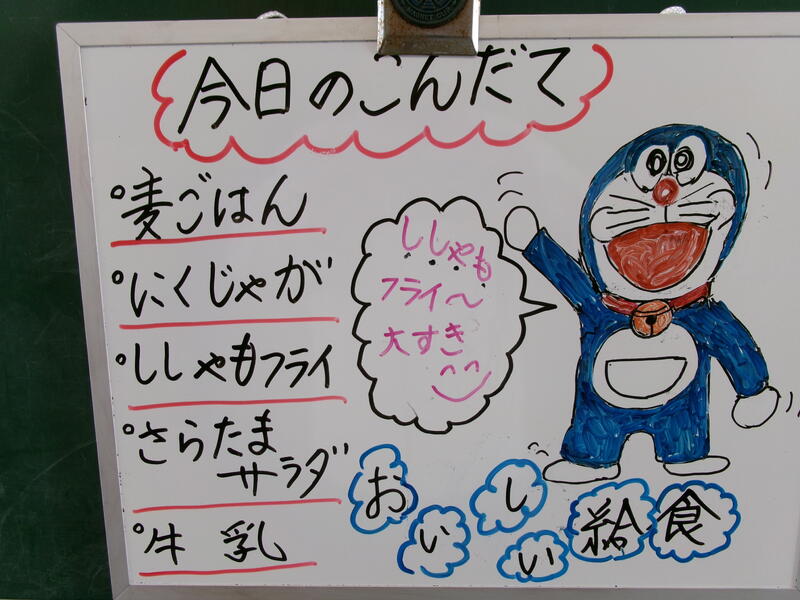 今日のこんだて
麦ごはん
にくじゃが
ししゃもフライ
さらたま
サラダ
牛乳
ししゃも
フライ〜
大すき
おいしい給食